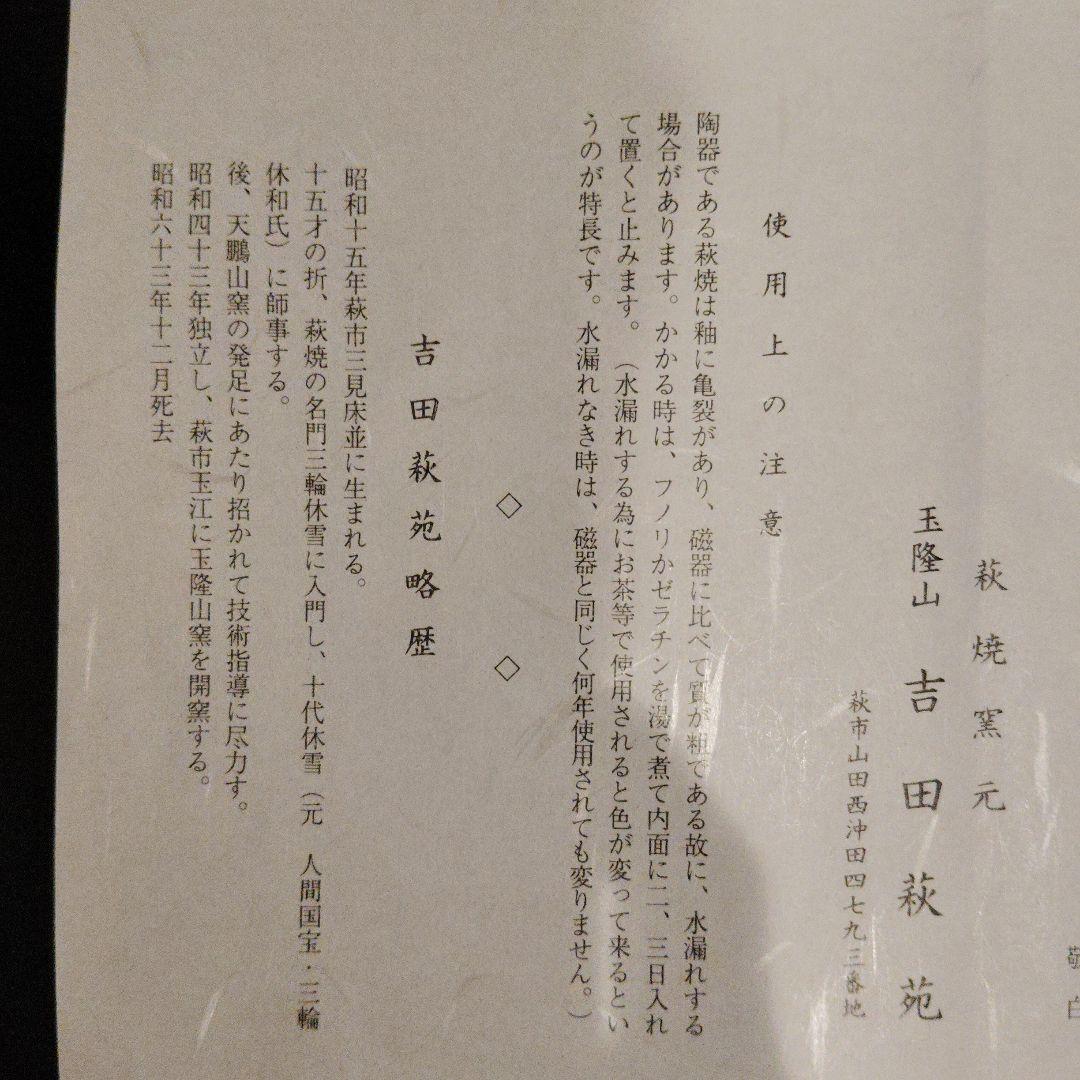 敬白
萩焼窯元
玉隆山 吉田萩苑
萩市山田西沖田四七九三番地
使用上の注意
陶器である萩焼は釉に亀裂があり、磁器に比べて質が粗である故に、水漏れする
場合があります。かかる時は、フノリかゼラチンを湯で煮て内面に二、三日入れ
て置くと止みます。（水漏れする為にお茶等で使用されると色が変って来るとい
うのが特長です。水漏れなき時は、磁器と同じく何年使用されても変りません。）
◇ ◇
吉田萩苑略歴
昭和十五年萩市三見床並に生まれる。
十五才の折、萩焼の名門三輪休雪に入門し、十代休雪（元 人間国宝・三輪
休和氏）に師事する。
後、天鵬山窯の発足にあたり招かれて技術指導に尽力す。
昭和四十三年独立し、萩市玉江に玉隆山窯を開窯する。
昭和六十三年十二月死去